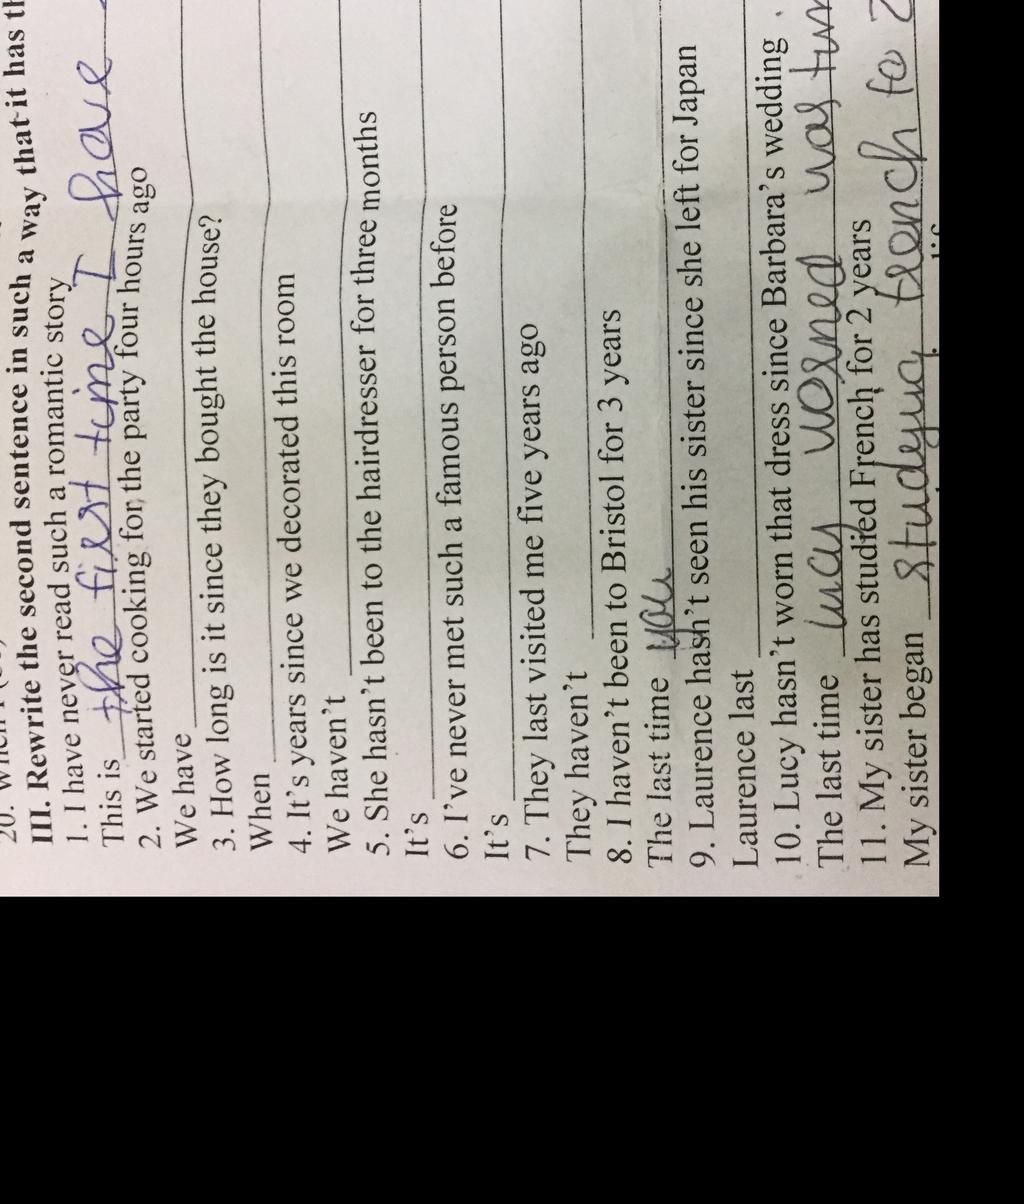 III. Rewrite the second sentence in such a way that it has
1. I have never read such a romantic story
This is the first time I have
2. We started cooking for the party four hours ago
We have
3. How long is it since they bought the house?
When
4. It's years since we decorated this room
We haven't
5. She hasn't been to the hairdresser for three months
It's
6. I've never met such a famous person before
It's
7. They last visited me five years ago
They haven't
8. I haven't been to Bristol for 3 years
The last time you
9. Laurence hasn't seen his sister since she left for Japan
Laurence last
10. Lucy hasn't worn that dress since Barbara's wedding.
The last time lucy worned was
11. My sister has studied French for 2 years
My sister began studying french to 2